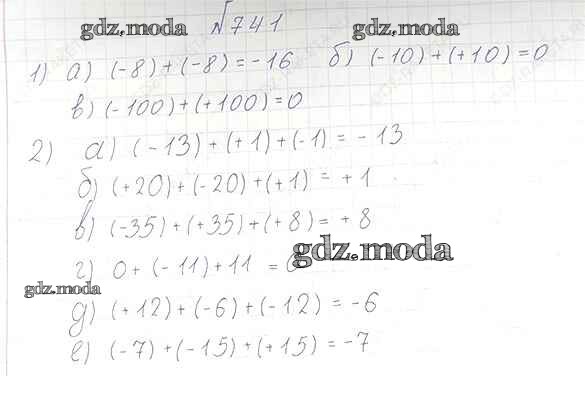 gdz.moda №741 gdz.moda
1) а) (-8)+(-8)=-16 б) (-10)+(+10)=0
в) (-100)+(+100)=0
2) а) (-13)+(+1)+(-1)=-13
б) (+20)+(-20)+(+1)=+1
в) (-35)+(+35)+(+8)=+8
gdz.moda
г) 0+(-11)+11=0
gdz.moda
д) (+12)+(-6)+(-12)=-6
е) (-7)+(-15)+(+15)=-7